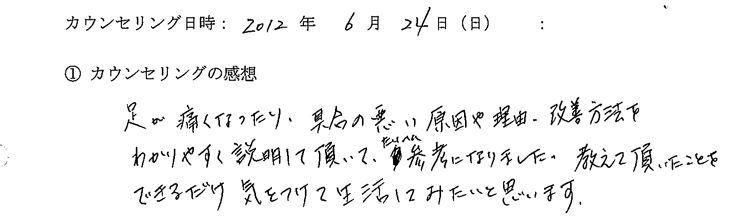 カウンセリング日時： 2012 年 6 月 24 日（日） ：
① カウンセリングの感想
足が痛くなったり、具合の悪い原因や理由、改善方法を
わかりやすく説明して頂いて、たいへん参考になりました。教えて頂いたことを
できるだけ気をつけて生活してみたいと思います。